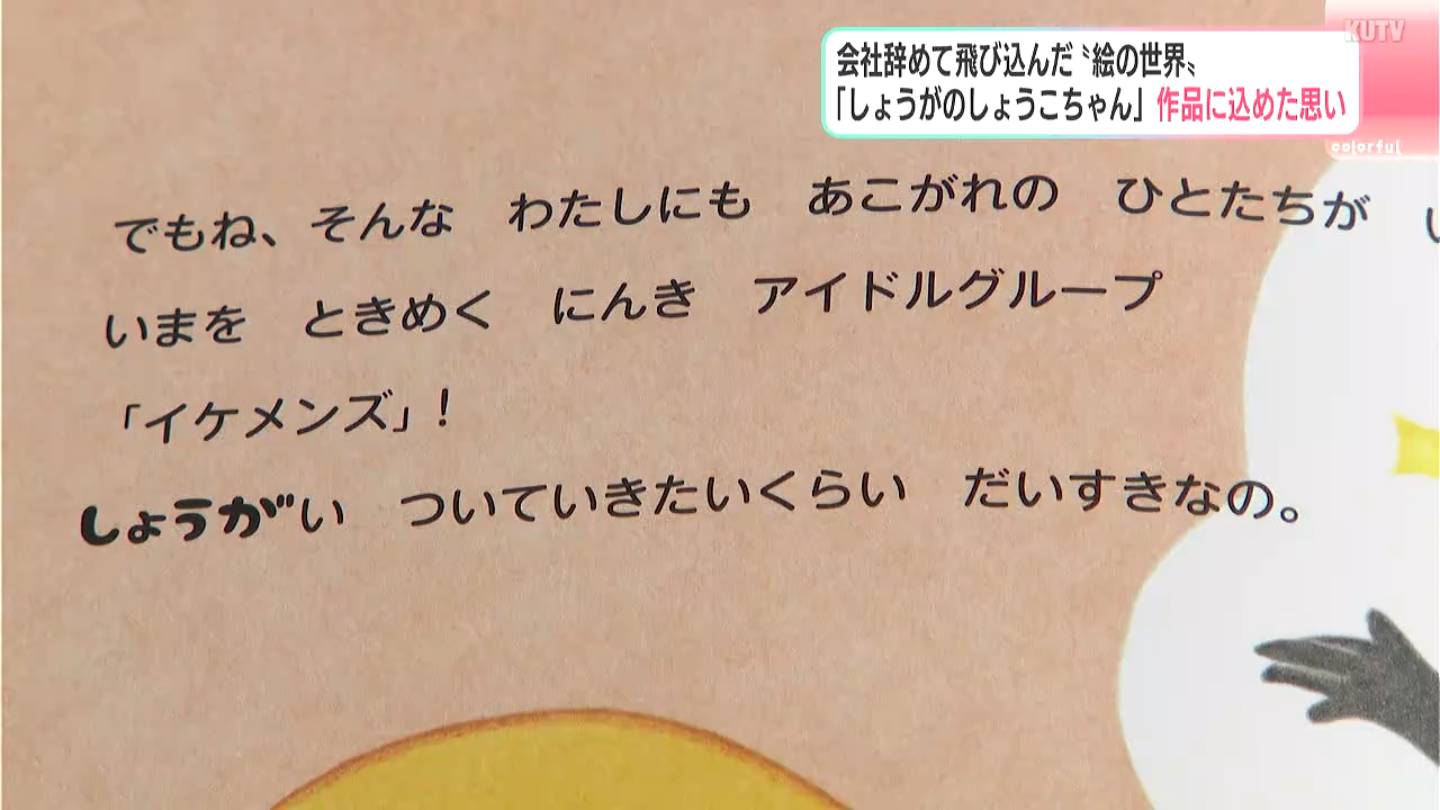 KUTV
会社辞めて飛び込んだ〝絵の世界〟
「しょうがのしょうこちゃん」作品に込めた思い
colorful
でもね、そんな わたしにも あこがれの ひとたちが
いまを ときめく にんき アイドルグループ
「イケメンズ」!
しょうがい ついていきたいくらい だいすきなの。